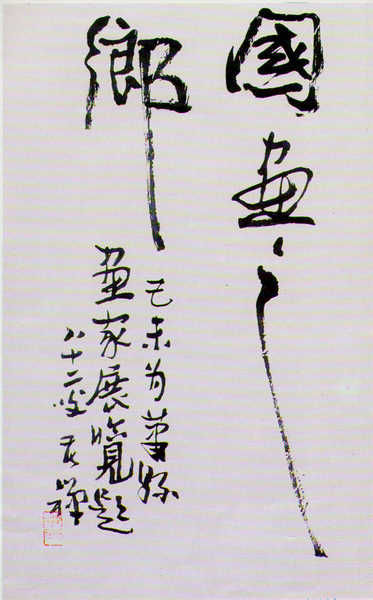 國畫之
鄉
己未为蕭縣
畫家展覽題
八十二叟苦禪